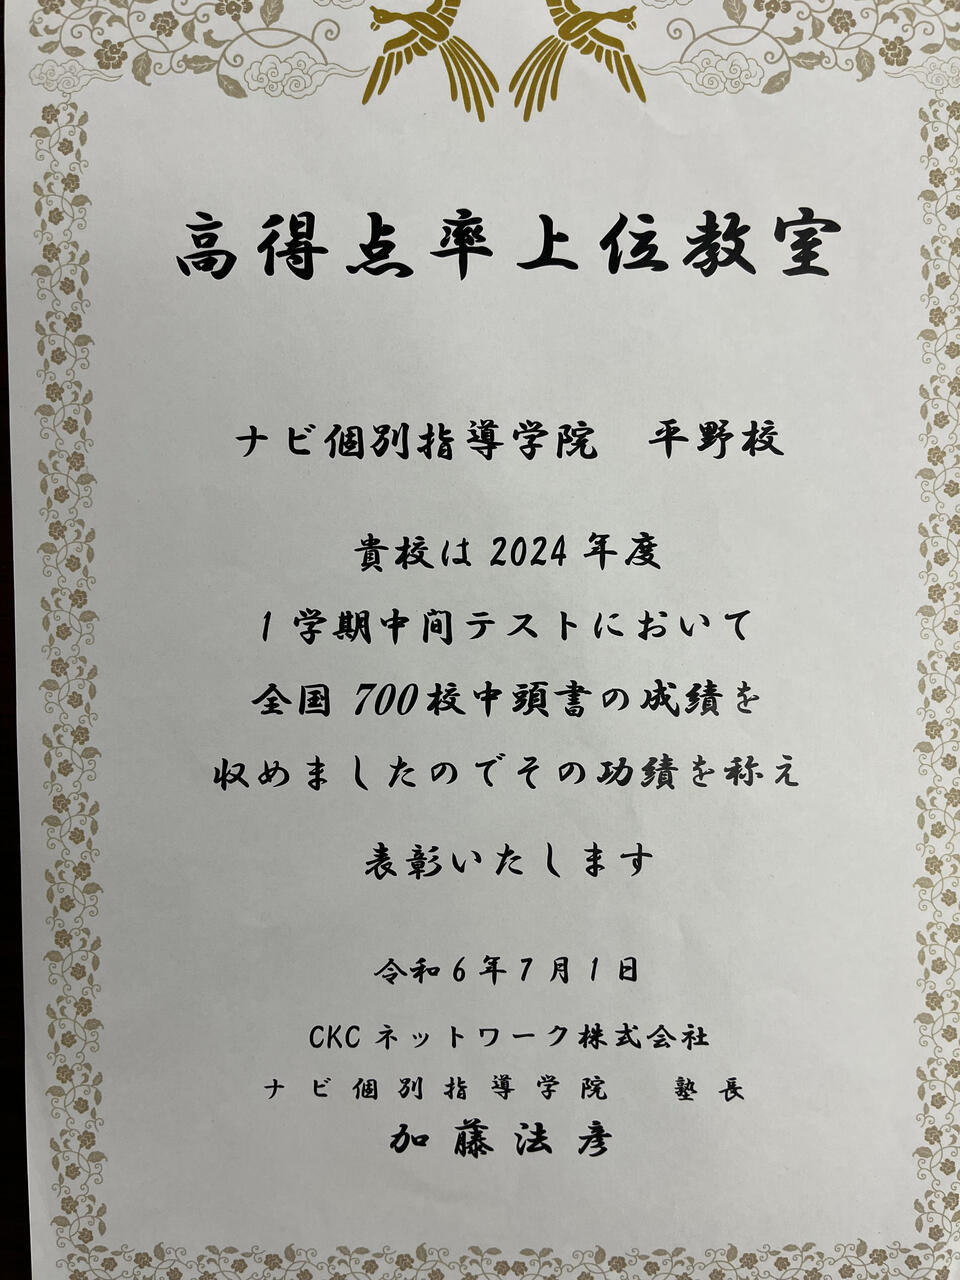 高得点率上位教室
ナビ個別指導学院　平野校
貴校は 2024 年度
1 学期中間テストにおいて
全国 700校中頭書の成績を
収めましたのでその功績を称え
表彰いたします
令和 6 年 7 月 1 日
CKC ネットワーク株式会社
ナビ個別指導学院　塾長
加藤法彦